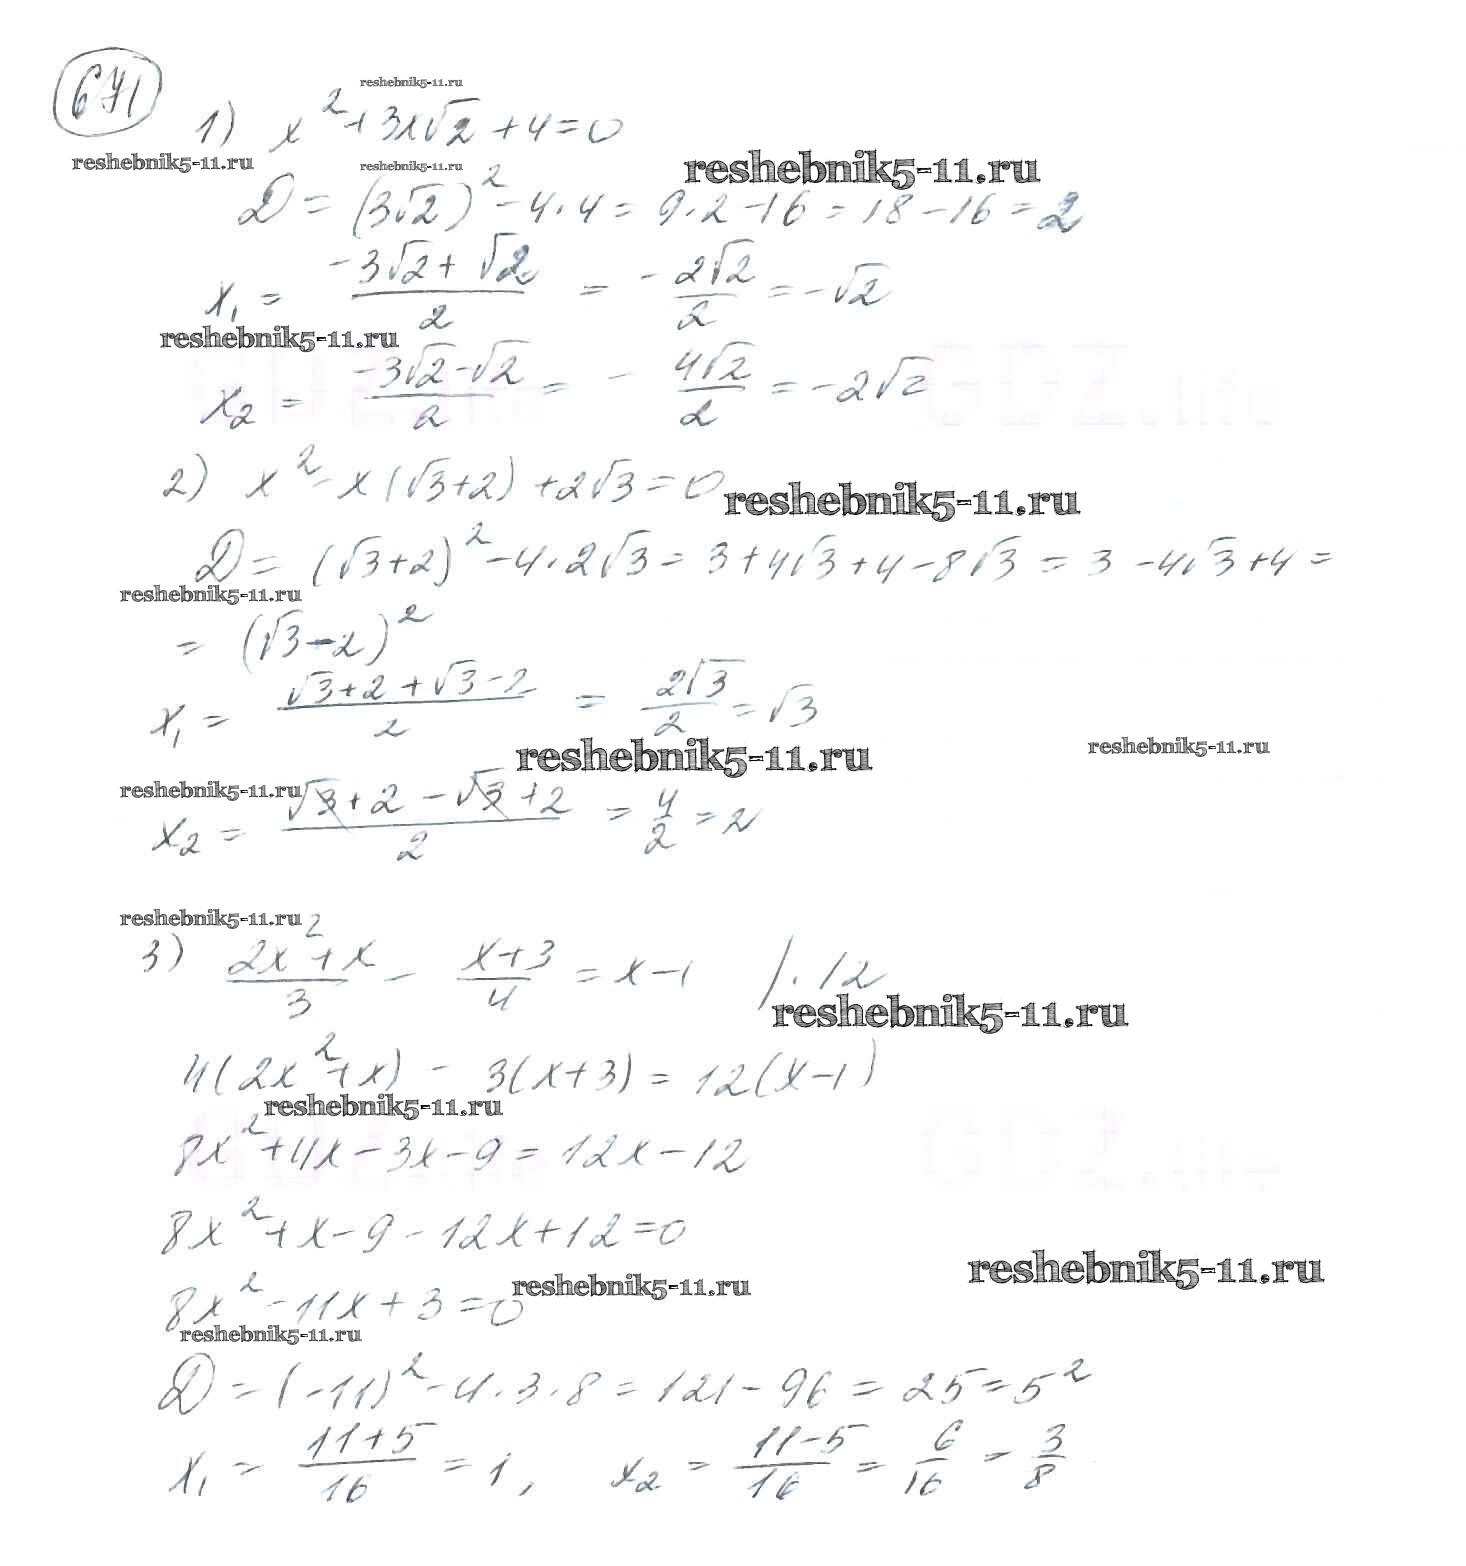 671
reshebnik5-11.ru
1) x² + 3x√2 + 4 = 0
reshebnik5-11.ru
reshebnik5-11.ru
reshebnik5-11.ru
D = (3√2)² - 4·4 = 9·2 - 16 = 18 - 16 = 2
x₁ = (-3√2 + √2)/2 = -2√2/2 = -√2
reshebnik5-11.ru
GDZ.life
GDZ.life
x₂ = (-3√2 - √2)/2 = -4√2/2 = -2√2
2) x² - x(√3+2) + 2√3 = 0
reshebnik5-11.ru
D = (√3+2)² - 4·2√3 = 3 + 4√3 + 4 - 8√3 = 3 - 4√3 + 4 =
reshebnik5-11.ru
= (√3-2)²
x₁ = (√3+2+√3-2)/2 = 2√3/2 = √3
reshebnik5-11.ru
reshebnik5-11.ru
reshebnik5-11.ru
x₂ = (√3+2-√3+2)/2 = 4/2 = 2
reshebnik5-11.ru
3) (2x²+x)/3 - (x+3)/4 = x-1 /·12
reshebnik5-11.ru
4(2x²+x) - 3(x+3) = 12(x-1)
reshebnik5-11.ru
GDZ.life
GDZ.life
8x²+4x-3x-9 = 12x-12
8x²+x-9-12x+12=0
reshebnik5-11.ru
reshebnik5-11.ru
8x²-11x+3=0
reshebnik5-11.ru
D = (-11)² - 4·3·8 = 121 - 96 = 25 = 5²
x₁ = (11+5)/16 = 1, x₂ = (11-5)/16 = 6/16 = 3/8